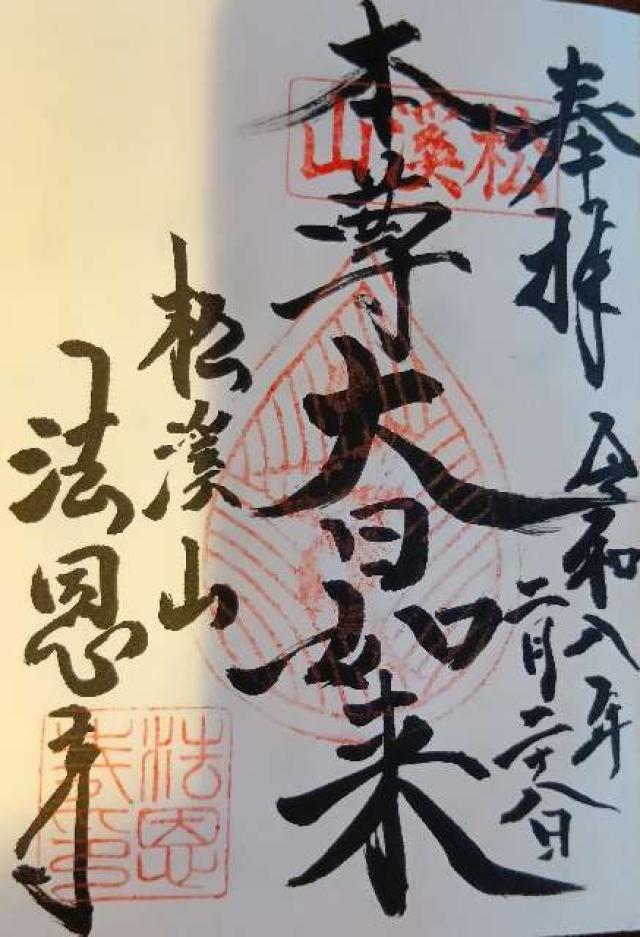 奉拝
令和八年
二月二十八日
松溪山
本尊大日如来
松溪山
法恩寺
法恩